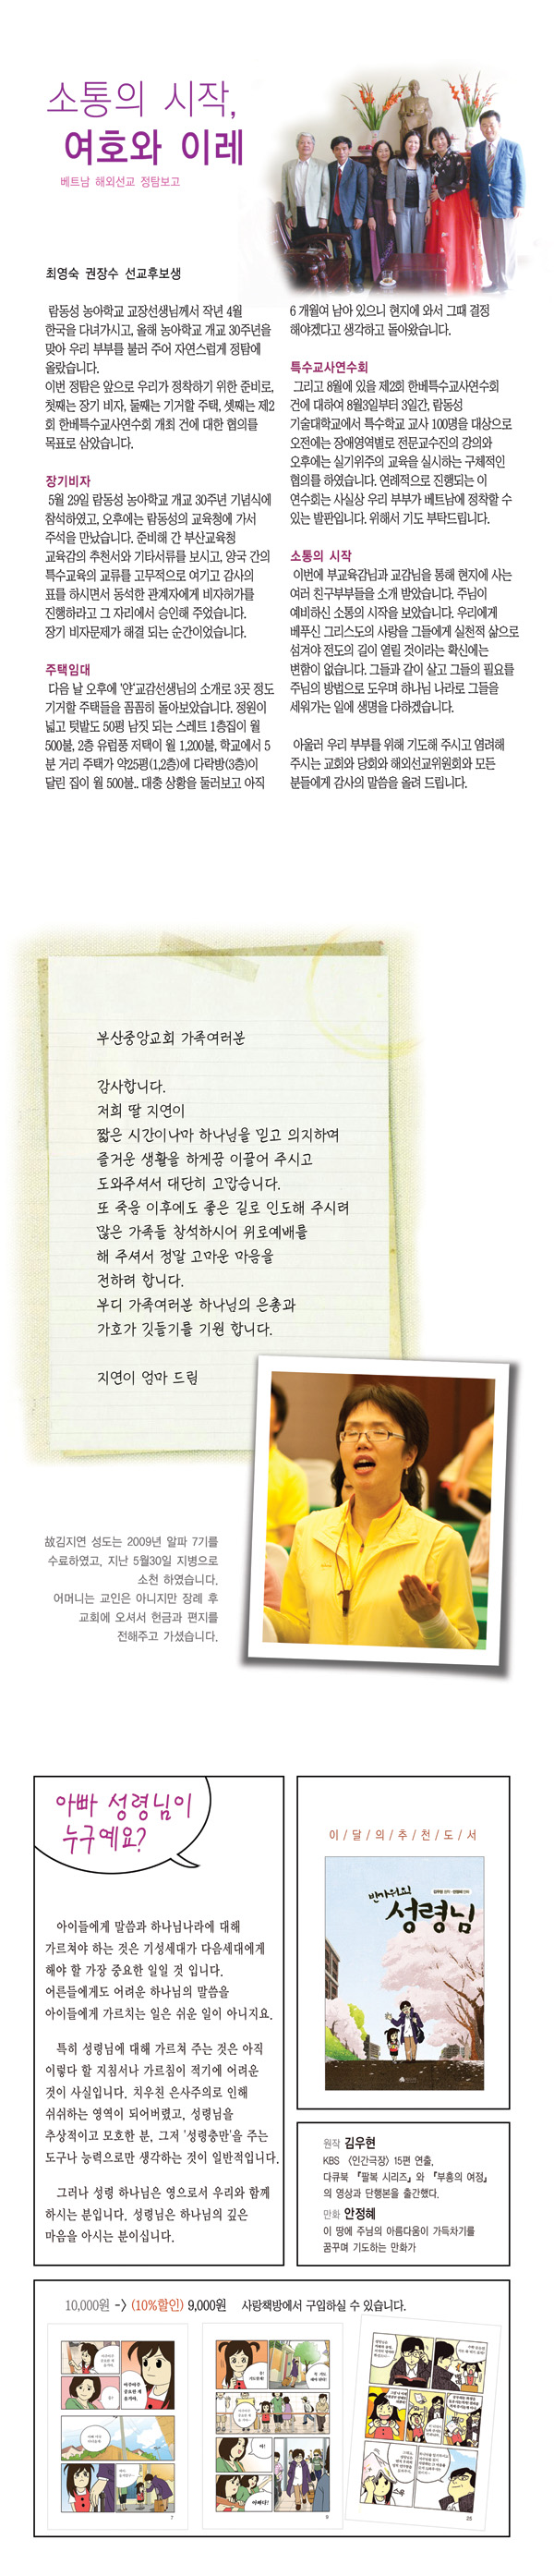 소통의 시작,
여호와 이레
베트남 해외선교 정탐보고
최영숙 권장수 선교후보생
람동성 농아학교 교장선생님께서 작년 4월
한국을 다녀가시고, 올해 농아학교 개교 30주년을
맞아 우리 부부를 불러 주어 자연스럽게 정탐에
올랐습니다.
이번 정탐은 앞으로 우리가 정착하기 위한 준비로,
첫째는 장기 비자, 둘째는 기거할 주택, 셋째는 제2
회 한베특수교사연수회 개최 건에 대한 협의를
목표로 삼았습니다.
장기비자
5월 29일 람동성 농아학교 개교 30주년 기념식에
참석하였고, 오후에는 람동성의 교육청에 가서
주석을 만났습니다. 준비해 간 부산교육청
교육감의 추천서와 기타서류를 보시고, 양국 간의
특수교육의 교류를 고무적으로 여기고 감사의
표를 하시면서 동석한 관계자에게 비자허가를
진행하라고 그 자리에서 승인해 주었습니다.
장기 비자문제가 해결 되는 순간이었습니다.
주택임대
다음 날 오후에 '안'교감선생님의 소개로 3곳 정도
기거할 주택들을 꼼꼼히 돌아보았습니다. 정원이
넓고 텃밭도 50평 남짓 되는 스레트 1층집이 월
500불, 2층 유럽풍 저택이 월 1,200불, 학교에서 5
분 거리 주택가 약25평(1,2층)에 다락방(3층)이
달린 집이 월 500불.. 대충 상황을 둘러보고 아직
6 개월여 남아 있으니 현지에 와서 그때 결정
해야겠다고 생각하고 돌아왔습니다.
특수교사연수회
그리고 8월에 있을 제2회 한베특수교사연수회
건에 대하여 8월3일부터 3일간, 람동성
기술대학교에서 특수학교 교사 100명을 대상으로
오전에는 장애영역별로 전문교수진의 강의와
오후에는 실기위주의 교육을 실시하는 구체적인
협의를 하였습니다. 연례적으로 진행되는 이
연수회는 사실상 우리 부부가 베트남에 정착할 수
있는 발판입니다. 위해서 기도 부탁드립니다.
소통의 시작
이번에 부교육감님과 교감님을 통해 현지에 사는
여러 친구부부들을 소개 받았습니다. 주님이
예비하신 소통의 시작을 보았습니다. 우리에게
베푸신 그리스도의 사랑을 그들에게 실천적 삶으로
섬겨야 전도의 길이 열릴 것이라는 확신에는
변함이 없습니다. 그들과 같이 살고 그들의 필요를
주님의 방법으로 도우며 하나님 나라로 그들을
세워가는 일에 생명을 다하겠습니다.
아울러 우리 부부를 위해 기도해 주시고 염려해
주시는 교회와 당회와 해외선교위원회와 모든
분들에게 감사의 말씀을 올려 드립니다.
부산중앙교회 가족여러분
감사합니다.
저희 딸 지연이
짧은 시간이나마 하나님을 믿고 의지하며
즐거운 생활을 하게끔 이끌어 주시고
도와주셔서 대단히 고맙습니다.
또 죽음 이후에도 좋은 길로 인도해 주시려
많은 가족들 참석하시어 위로예배를
해 주셔서 정말 고마운 마음을
전하려 합니다.
부디 가족여러분 하나님의 은총과
가호가 깃들기를 기원 합니다.
지연이 엄마 드림
故김지연 성도는 2009년 알파 7기를
수료하였고, 지난 5월30일 지병으로
소천 하였습니다.
어머니는 교인은 아니지만 장례 후
교회에 오셔서 헌금과 편지를
전해주고 가셨습니다.
아빠 성령님이
누구예요?
아이들에게 말씀과 하나님나라에 대해
가르쳐야 하는 것은 기성세대가 다음세대에게
해야 할 가장 중요한 일일 것 입니다.
어른들에게도 어려운 하나님의 말씀을
아이들에게 가르치는 일은 쉬운 일이 아니지요.
특히 성령님에 대해 가르쳐 주는 것은 아직
이렇다 할 지침서나 가르침이 적기에 어려운
것이 사실입니다. 치우친 은사주의로 인해
쉬쉬하는 영역이 되어버렸고, 성령님을
추상적이고 모호한 분, 그저 '성령충만'을 주는
도구나 능력으로만 생각하는 것이 일반적입니다.
그러나 성령 하나님은 영으로서 우리와 함께
하시는 분입니다. 성령님은 하나님의 깊은
마음을 아시는 분이십니다.
이/달/의/추/천/도/서
반가워요!
성령님
원작 김우현
KBS 〈인간극장〉 15편 연출,
다큐북 『팔복 시리즈』와 『부흥의 여정』
의 영상과 단행본을 출간했다.
만화 안정혜
이 땅에 주님의 아름다움이 가득차기를
꿈꾸며 기도하는 만화가
10,000원 -> (10%할인) 9,000원 사랑책방에서 구입하실 수 있습니다.
7
9
25